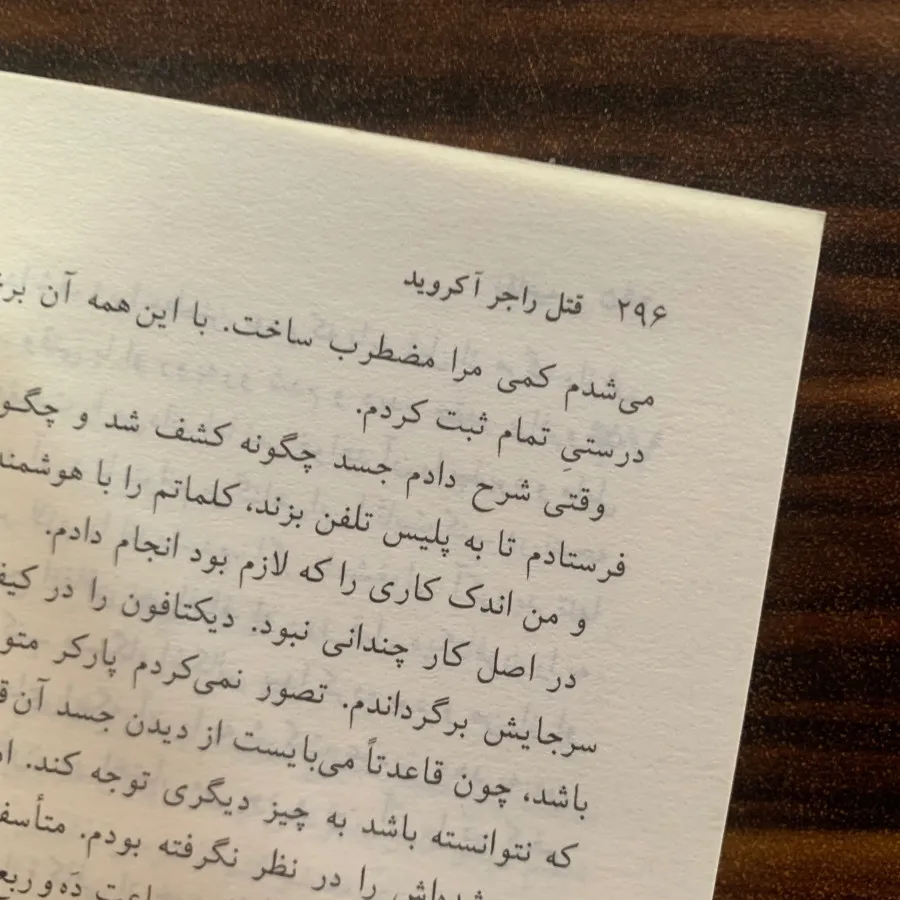 ۲۹۶ قتل راجر آکروید
می‌شدم کمی مرا مضطرب ساخت. با این‌همه آن
درستیِ تمام ثبت کردم.
وقتی شرح دادم جسد چگونه کشف شد و
فرستادم تا به پلیس تلفن بزند، کلماتم را با
و من اندک کاری را که لازم بود انجام دادم.
در اصل کار چندانی نبود. دیکتافون را در
سرجایش برگرداندم. تصور نمی‌کردم پارکر
باشد، چون قاعدتاً می‌بایست از دیدن جسد
که نتوانسته باشد به چیز دیگری توجه کند.
را در نظر نگرفته بودم.